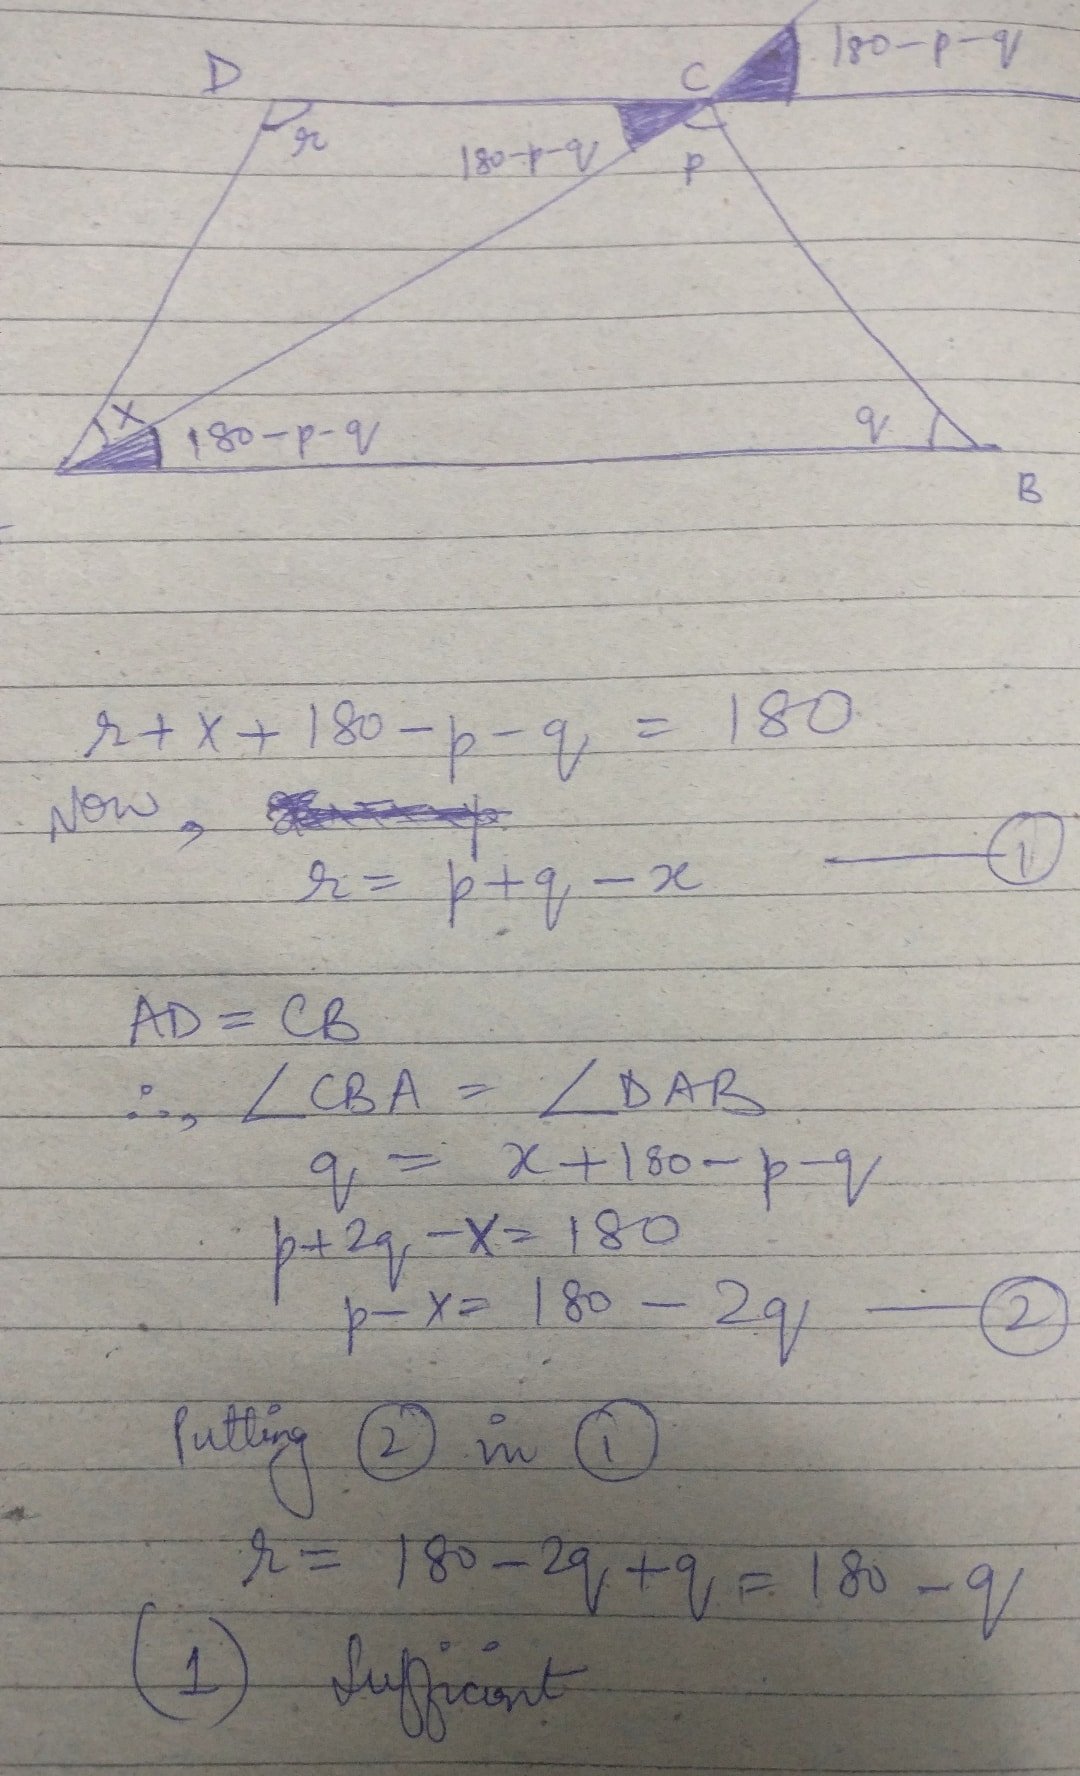 D
C
180-p-q
r
180-p-q
p
x
180-p-q
q
B
r+x+180-p-q = 180
Now,
r = p+q-x —— ①
AD = CB
∴, ∠CBA = ∠DAB
q = x+180-p-q
p+2q-x = 180
p-x = 180 - 2q —— ②
Putting ② in ①
r = 180-2q+q = 180-q
(1) Sufficient